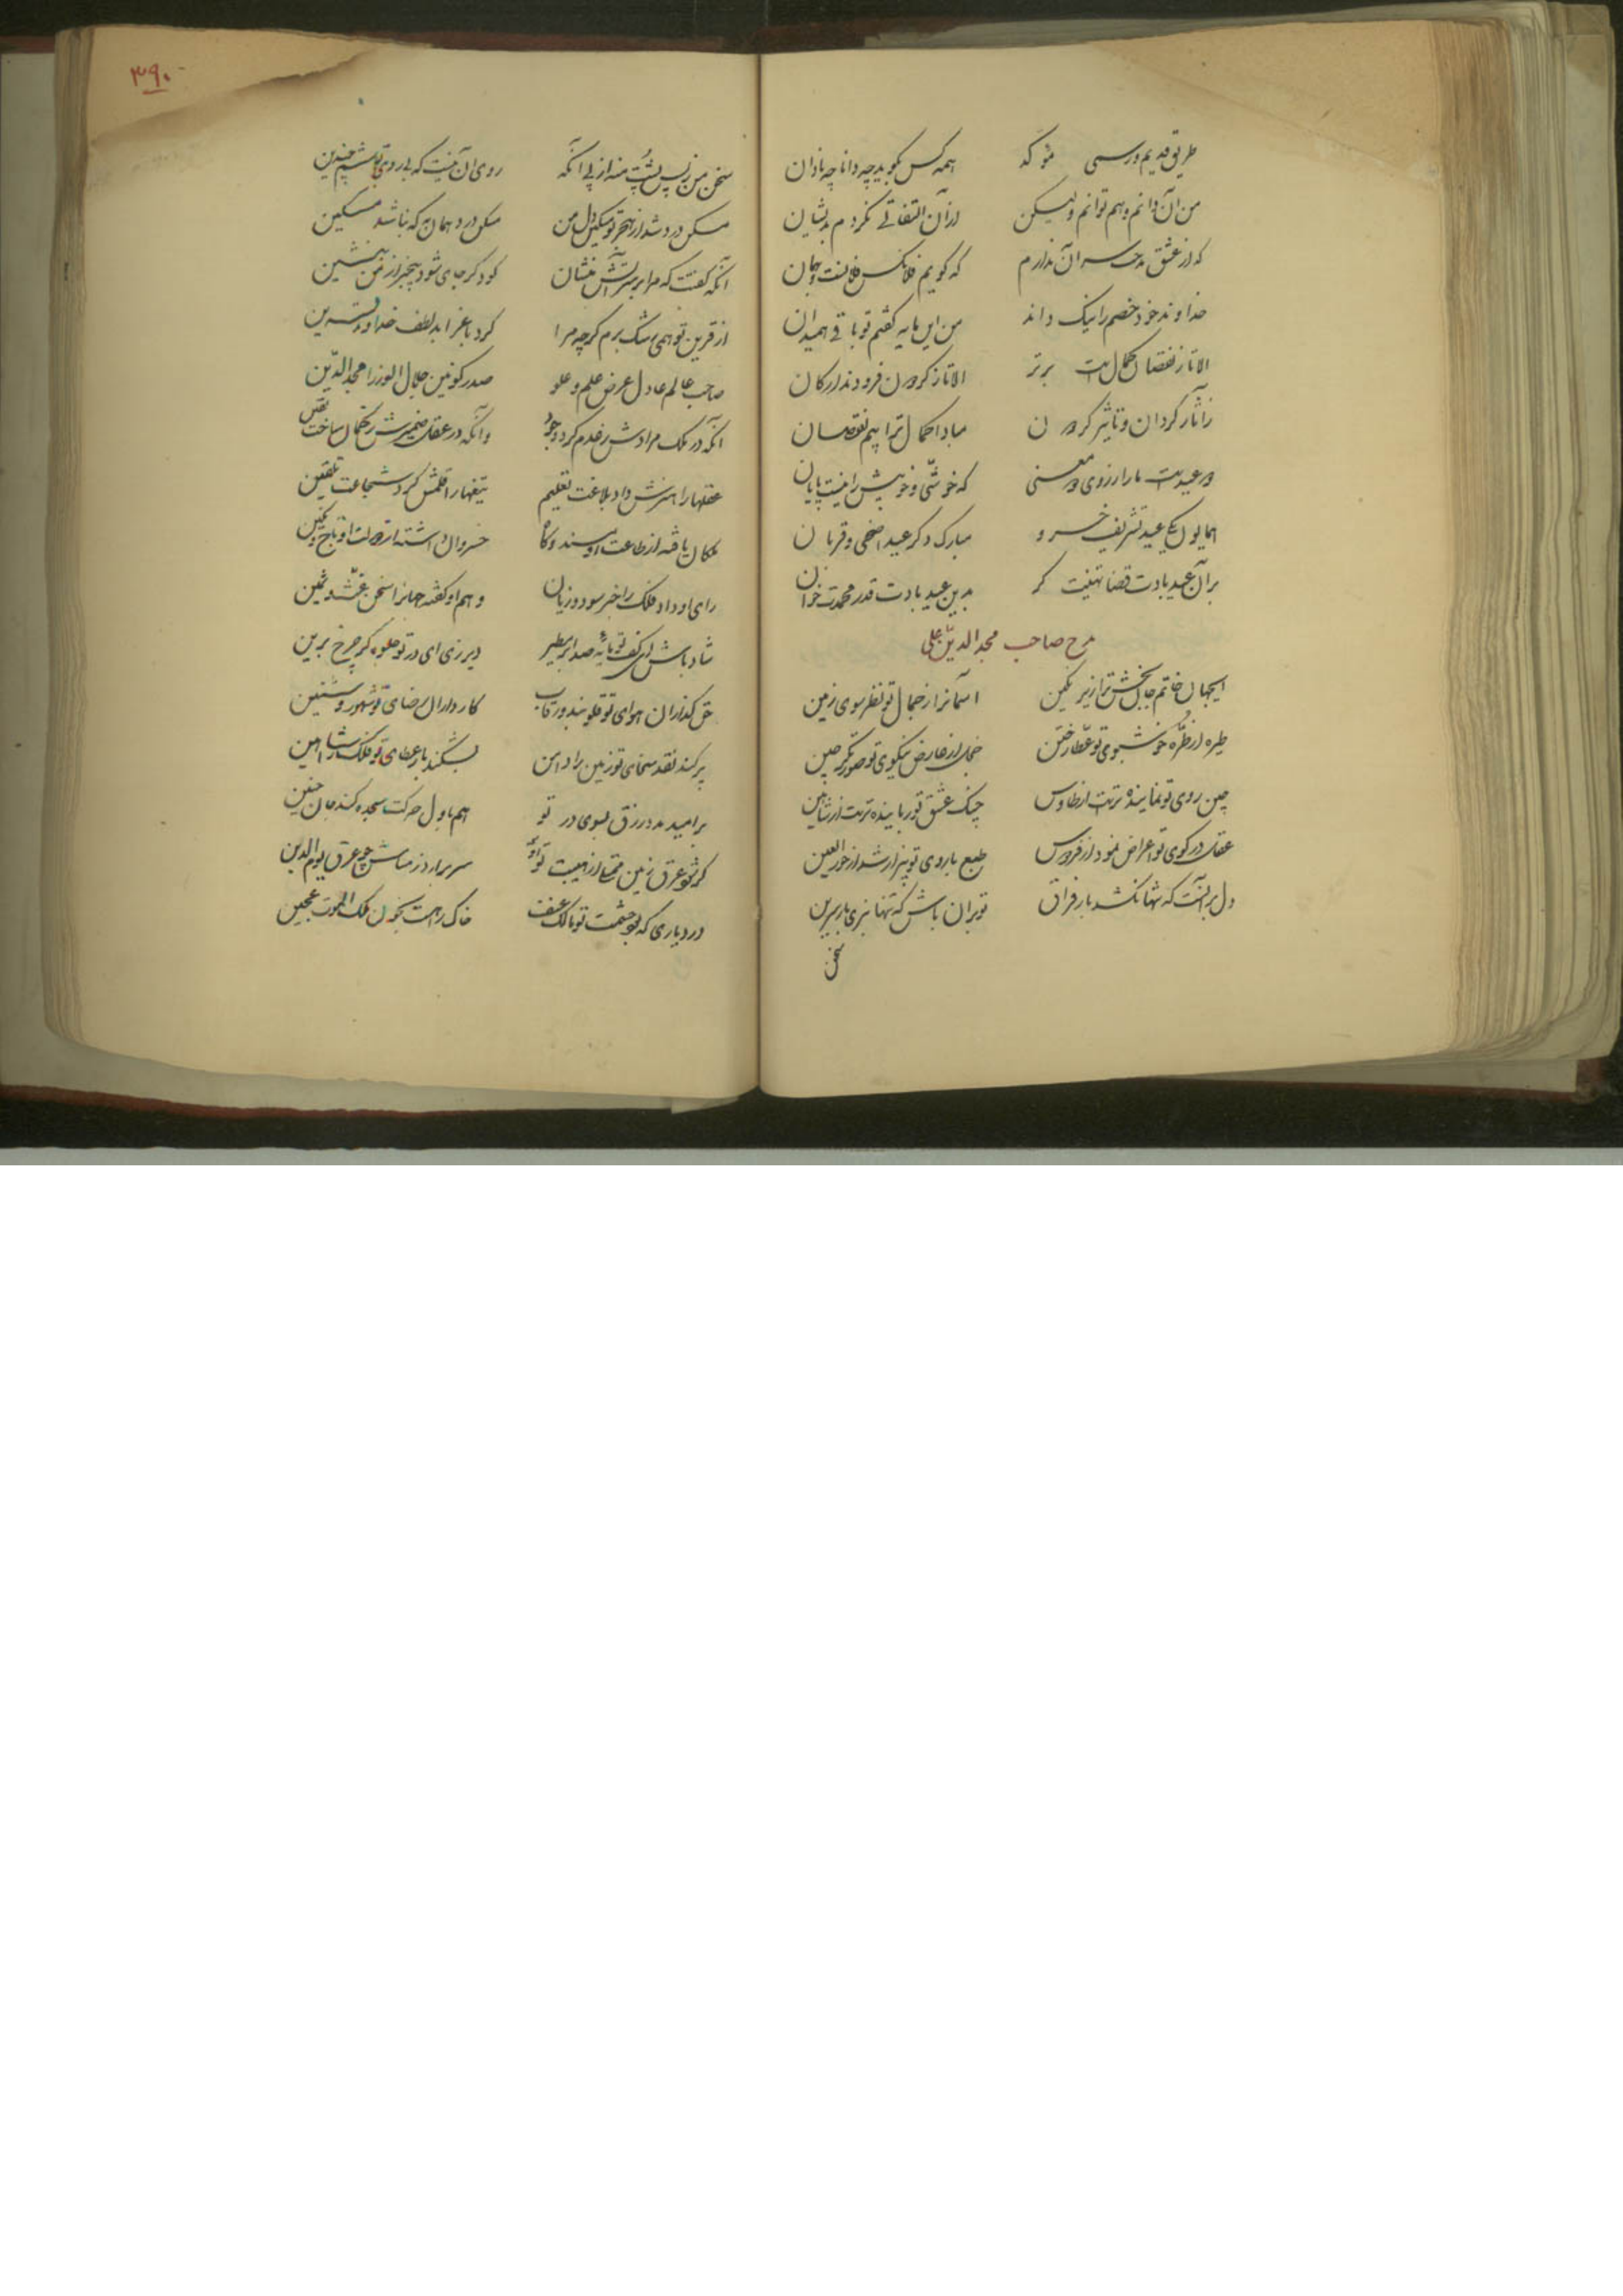 طریق قدیم و رسمی شو که همه کس بگوید چه دانا چه نادان
من آن دانم و هم توانم ولیکن از آن التفاتی نکردم بدیشان
که از عشق مدحت سر آن ندارم که گویم فلانکس فلانست و بهمان
خداوند خود خصم را نیک داند من این مایه گفتم تو باقی همیدان
الا تا ز نقصان کمال است برتر الا تا ز گردون فرودند ارکان
ز آثار گردان و تاثیر گردون مبادا کمال ترا بیم نقصان
دو عیدست ما را ز روی دو معنی که خوشی و خوبیش را نیست پایان
همایون یکی عید تشریف خسرو مبارک دگر عید اضحی و قربان
بر آن عید بادت قضا تهنیت گر بدین عید بادت قدر محمدت خوان
مدح صاحب مجدالدین علی
ای جهان خاتم جان بخش ترا زیر نگین آسمانرا ز جمال تو نظر سوی زمین
طیره از طره خوشبوی تو عطار ختن خجل از عارض نیکوی تو صورتگر چین
چین روی تو نماینده ترست از طاوس چنگ عشق تو رباینده ترست از شاهین
عقل در کوی تو اعراض نمود از فردوس طبع با روی تو بیزار شد از حورالعین
دل بر آنست که تنها نکشد بار فراق تو بر آن باش که تنها نبری بار سرین
سخن
۳۹۰
سخن من ز پس پشت منه از پی آنکه روی آن نیست که بی روی تو باشم چندین
مسکن درد شد از هجر تو مسکین دل من مسکن درد همان به که نباشد مسکین
آنکه گفتت که مرا بر سر آتش بنشان گو دگر جای شود بیخبر از من بنشین
از قرین تو همی رشک برم گرچه مرا کرد با عز ابد لطف خداوند قرین
صاحب عالم عادل عرض علم و علو صدر کونین جلال الوزرا مجدالدین
آنکه در ملک مرادش ز عدم کرد وجود وآنکه در عقل ضمیرش ز گمان ساخت یقین
عقلها را هنرش داد بلاغت تعلیم تیغها را قلمش کرد شجاعت تلقین
ملکان یافته از طاعت او مسند و گاه خسروان داشته از دولت او تاج و نگین
رای او داد فلک را خبر سود و زیان وهم او گفته جهانرا سخن غث و ثمین
شاد باش ای کف تو مایه صد ابر مطیر دیر زی ای در تو جلوه گر چرخ برین
حق گذاران هوای تو قلوبند و رقاب کارداران رضای تو شهور و سنین
پر کند نقد سخای تو زمین را دامن بشکند بار عطای تو فلک را شاهین
بر امید مدد رزق بسوی در تو هم باول حرکت سجده کند جان جنین
گر شود عرق زمین ممتلی از هیبت تو سر برآرد ز مسامش چو عرق یوم الدین
در دیاری که بود حشمت تو مالک عنف خاک راهست بخون ملک الموت عجین